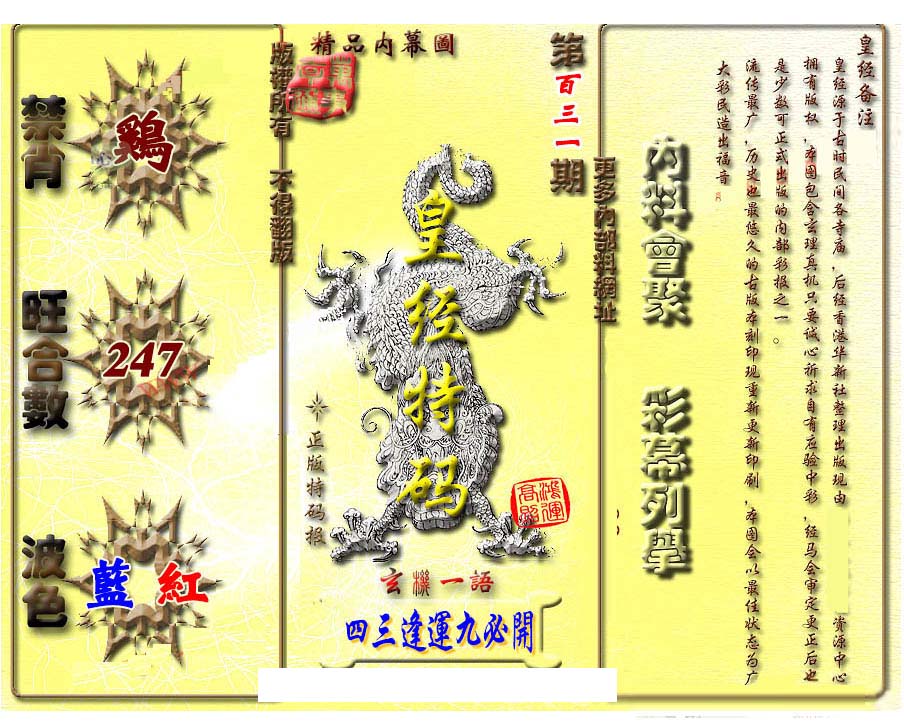 精品内幕圖
第
百三一
期
版權所有 不得翻版
更多内部料網址
禁肖
鷄
旺合數
247
波色
藍 紅
皇经特码
正版特码报
鸿運高照
玄機一語
四三逢運九必開
内料會聚
彩幕列舉
皇经备注
皇经源于古时民间各寺庙，后经香港华新社整理出版现由 资源中心
拥有版权，本图包含玄理真机只要诚心祈求自有应验中彩，经马会审定更正后也
是少数可正式出版的内部彩报之一。
流传最广，历史也最悠久的古版本刻印现重新更新印刷，本图会以最佳状态为广
大彩民造出福音